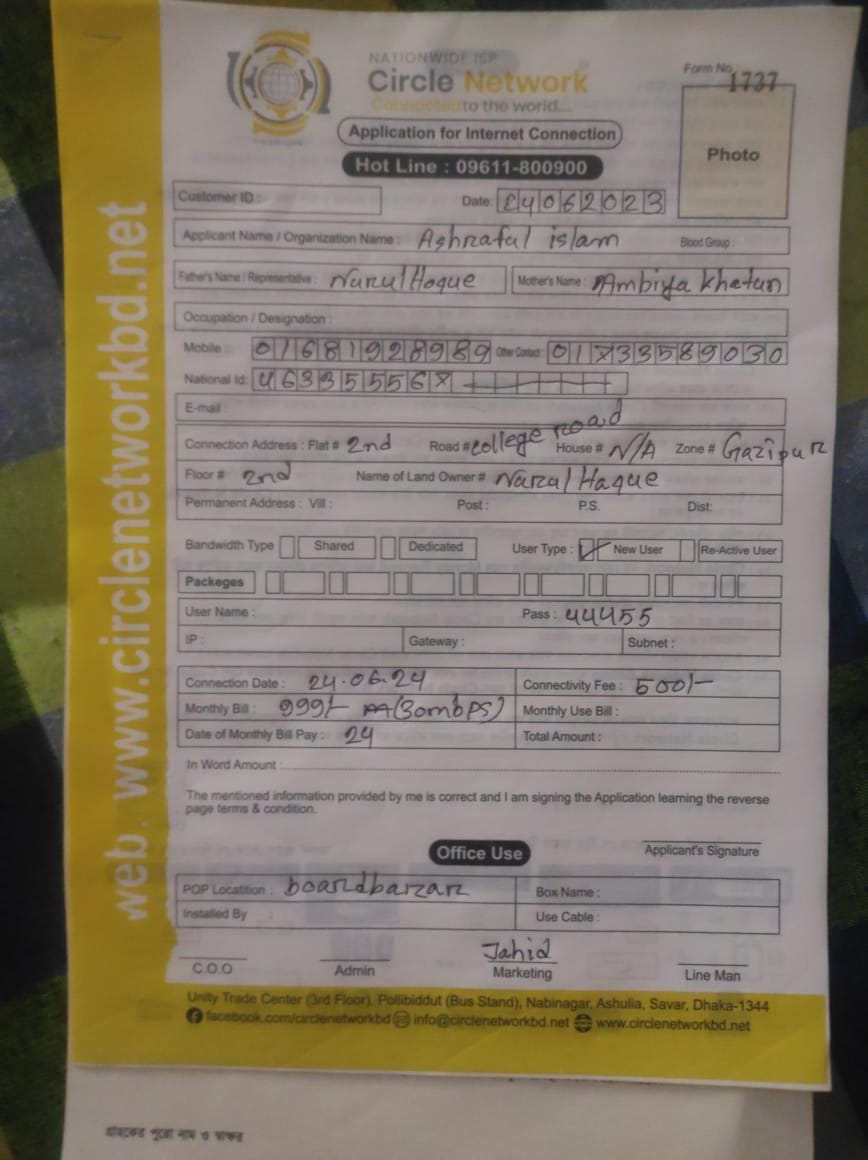 NATIONWIDE ISP
Circle Network
Connected to the world...
Form No. 1737
Application for Internet Connection
Hot Line : 09611-800900
Photo
Customer ID :
Date: 24062023
Applicant Name / Organization Name : Ashraful islam Blood Group :
Father's Name / Representative : Nurul Hoque Mother's Name : Ambiya Khatun
Occupation / Designation :
Mobile : 01681928989 Other Contact: 01733589030
National Id: 463355567
E-mail :
Connection Address : Flat # 2nd Road # college road House # N/A Zone # Gazipur
Floor # 2nd Name of Land Owner # Narul Haque
Permanent Address : Vill : Post : P.S. Dist:
Bandwidth Type Shared Dedicated User Type : New User Re-Active User
Packeges
User Name : Pass : 44455
IP : Gateway : Subnet :
Connection Date : 24.06.24 Connectivity Fee : 500/-
Monthly Bill : 999/- (30mbps) Monthly Use Bill :
Date of Monthly Bill Pay : 24 Total Amount :
In Word Amount :
The mentioned information provided by me is correct and I am signing the Application learning the reverse
page terms & condition.
Applicant's Signature
Office Use
POP Locatition : boardbarzar Box Name :
Installed By : Use Cable :
Jahid
C.O.O Admin Marketing Line Man
Unity Trade Center (3rd Floor), Pollibiddut (Bus Stand), Nabinagar, Ashulia, Savar, Dhaka-1344
facebook.com/circlenetworkbd info@circlenetworkbd.net www.circlenetworkbd.net
web. www.circlenetworkbd.net
গ্রাহকের পুরো নাম ও স্বাক্ষর